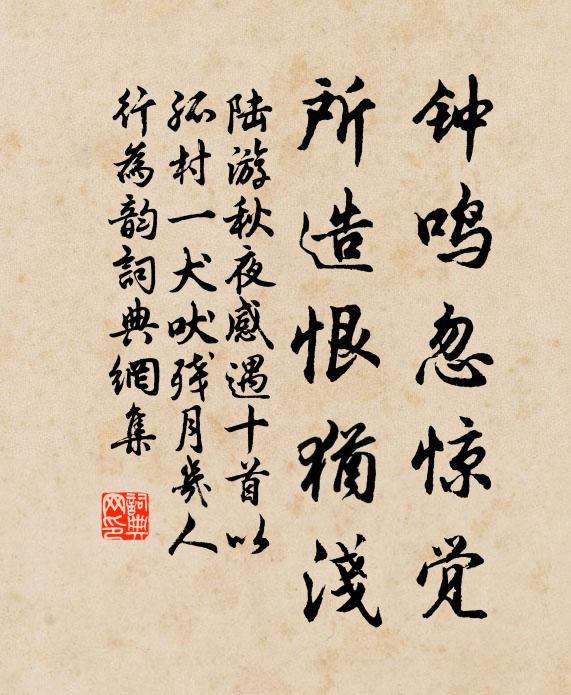 钟鸣忽惊觉
所造恨犹浅
陆游秋夜感遇十首以
孤村一犬吠残月几人
行為韵詞典網集
詞典网印